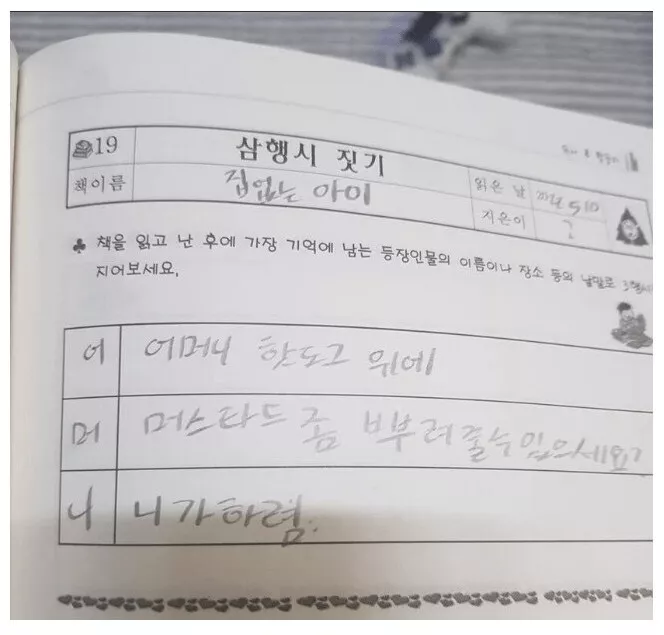 19
삼행시 짓기
책이름
집없는 아이
읽은 날
5 10
지은이
?
♣ 책을 읽고 난 후에 가장 기억에 남는 등장인물의 이름이나 장소 등의 낱말로 3행시
지어보세요.
어
어머니 핫도그 위에
머
머스타드 좀 바부려줄수 있으세요?
니
니가하렴.